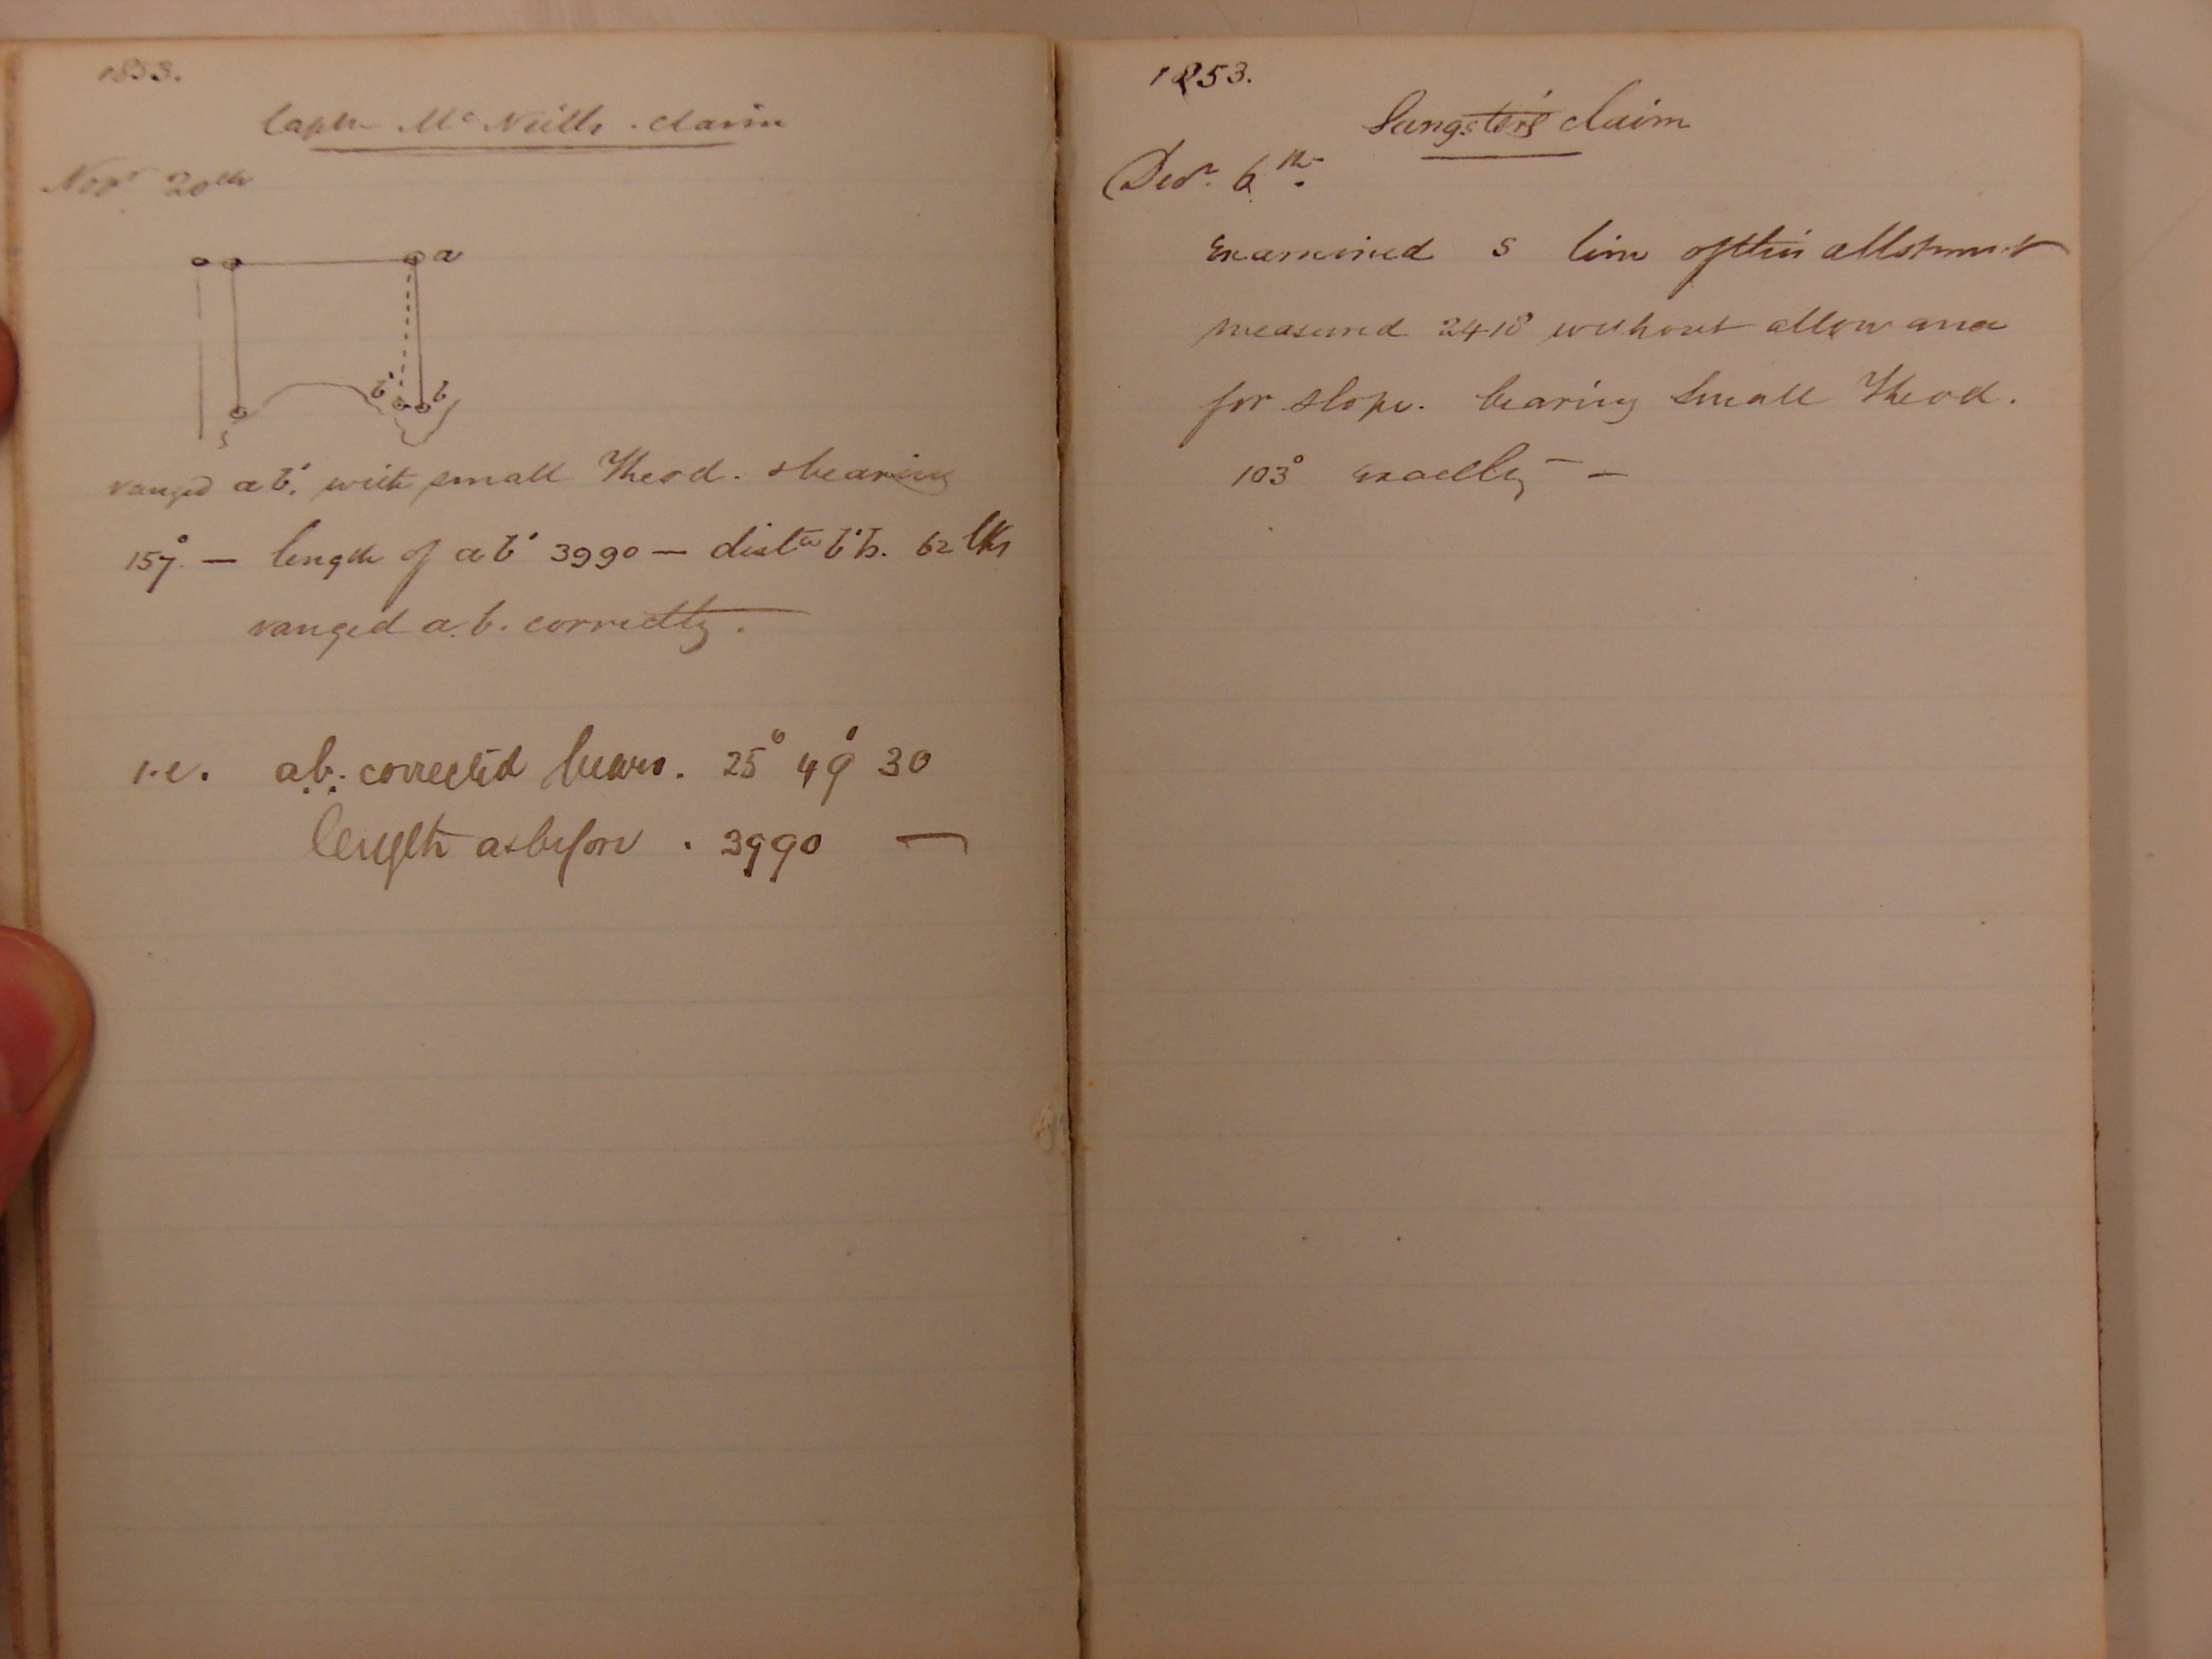 1853.
Captn Mc Neill's claim
Novr 20th
a
b' b
s
ranged ab' with small Theod. & bearing
157° — length of ab' 3990 — distce b'b. 62 lks
ranged a.b. correctly.
i.e. a.b. corrected bears. 25° 49' 30
length as before . 3990 —
1853.
Sangster's claim
Decr. 6th.
Examined S line of this allotment
measured 2418 without allowance
for slope. bearing small Theod.
103° exactly —